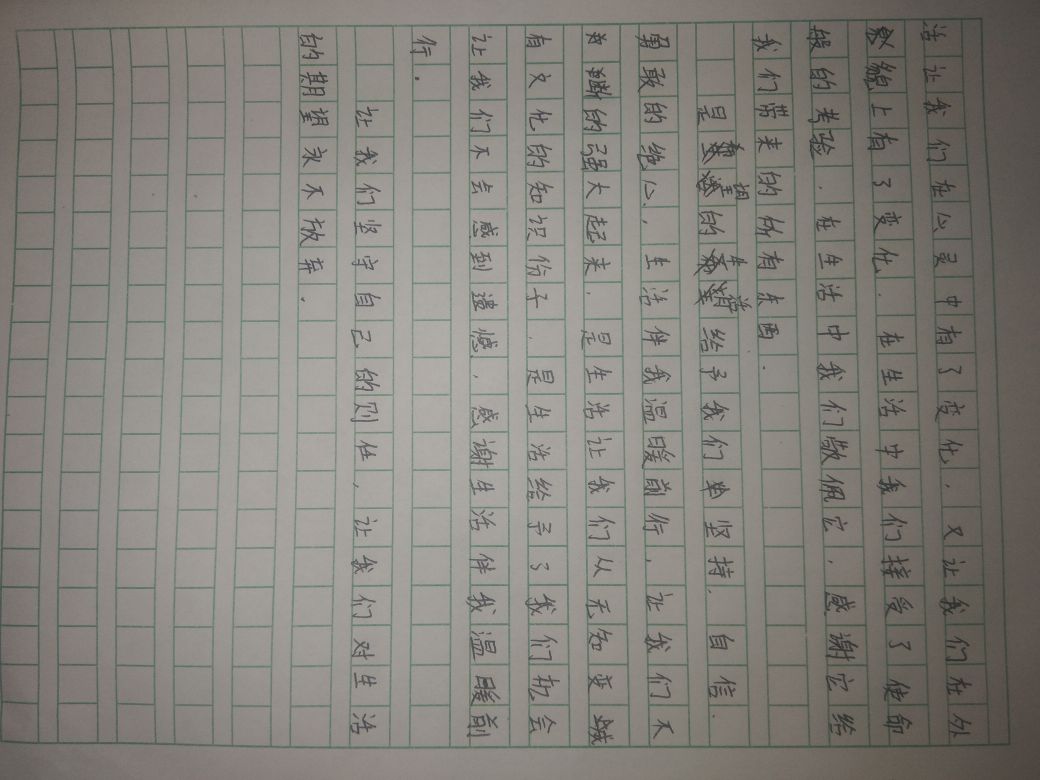 活让我们在心灵中有了变化，又让我们在外
貌上有了变化．在生活中我们接受了使命
般的考验．在生活中我们敬佩它．感谢它给
我们带来的所有东西．
是的给予我们坚持．自信．
勇敢的绝心，生活伴我温暖前行，让我们不
断的强大起来．是生活让我们从无知变
有文化的知识份子．是生活给予了我们机会
让我们不会感到遗憾．感谢生活伴我温暖前
行．
让我们坚守自己的则任，让我们对生活
的期望永不放弃．